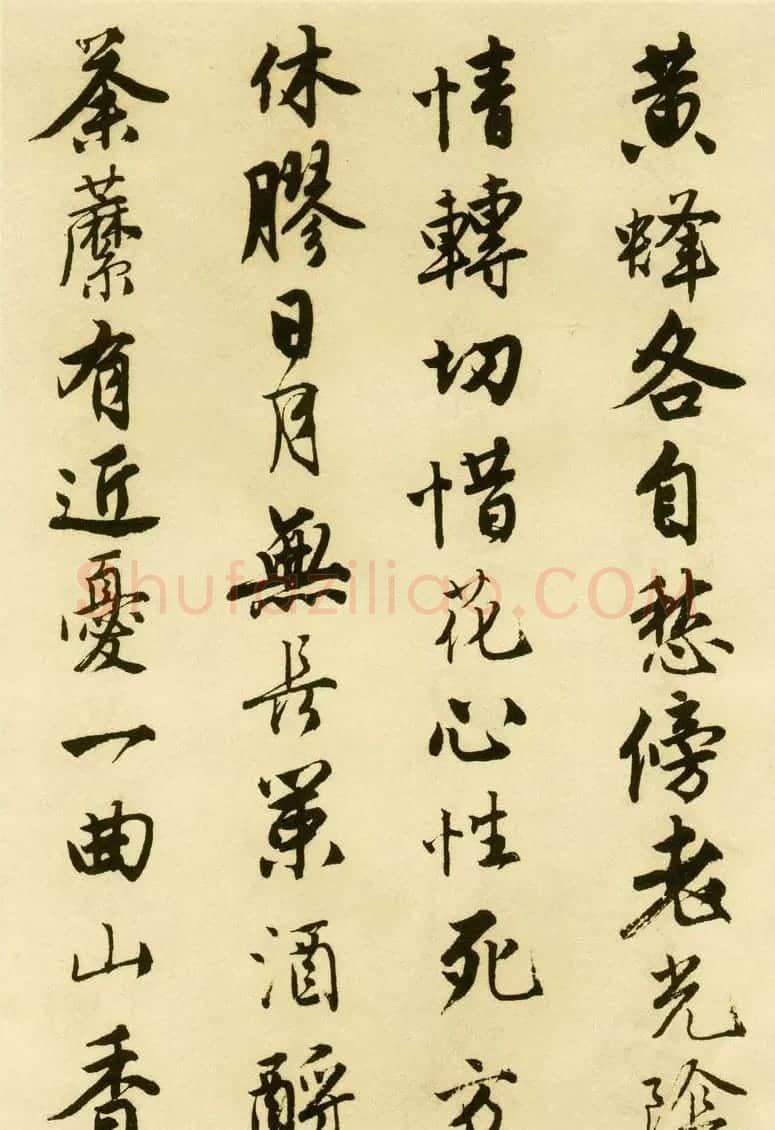 黄蜂各自愁傍老光陰
情轉切惜花心性死方
休膠日月無長策酒酹
荼蘼有近憂一曲山香
Shufaziliao.COM